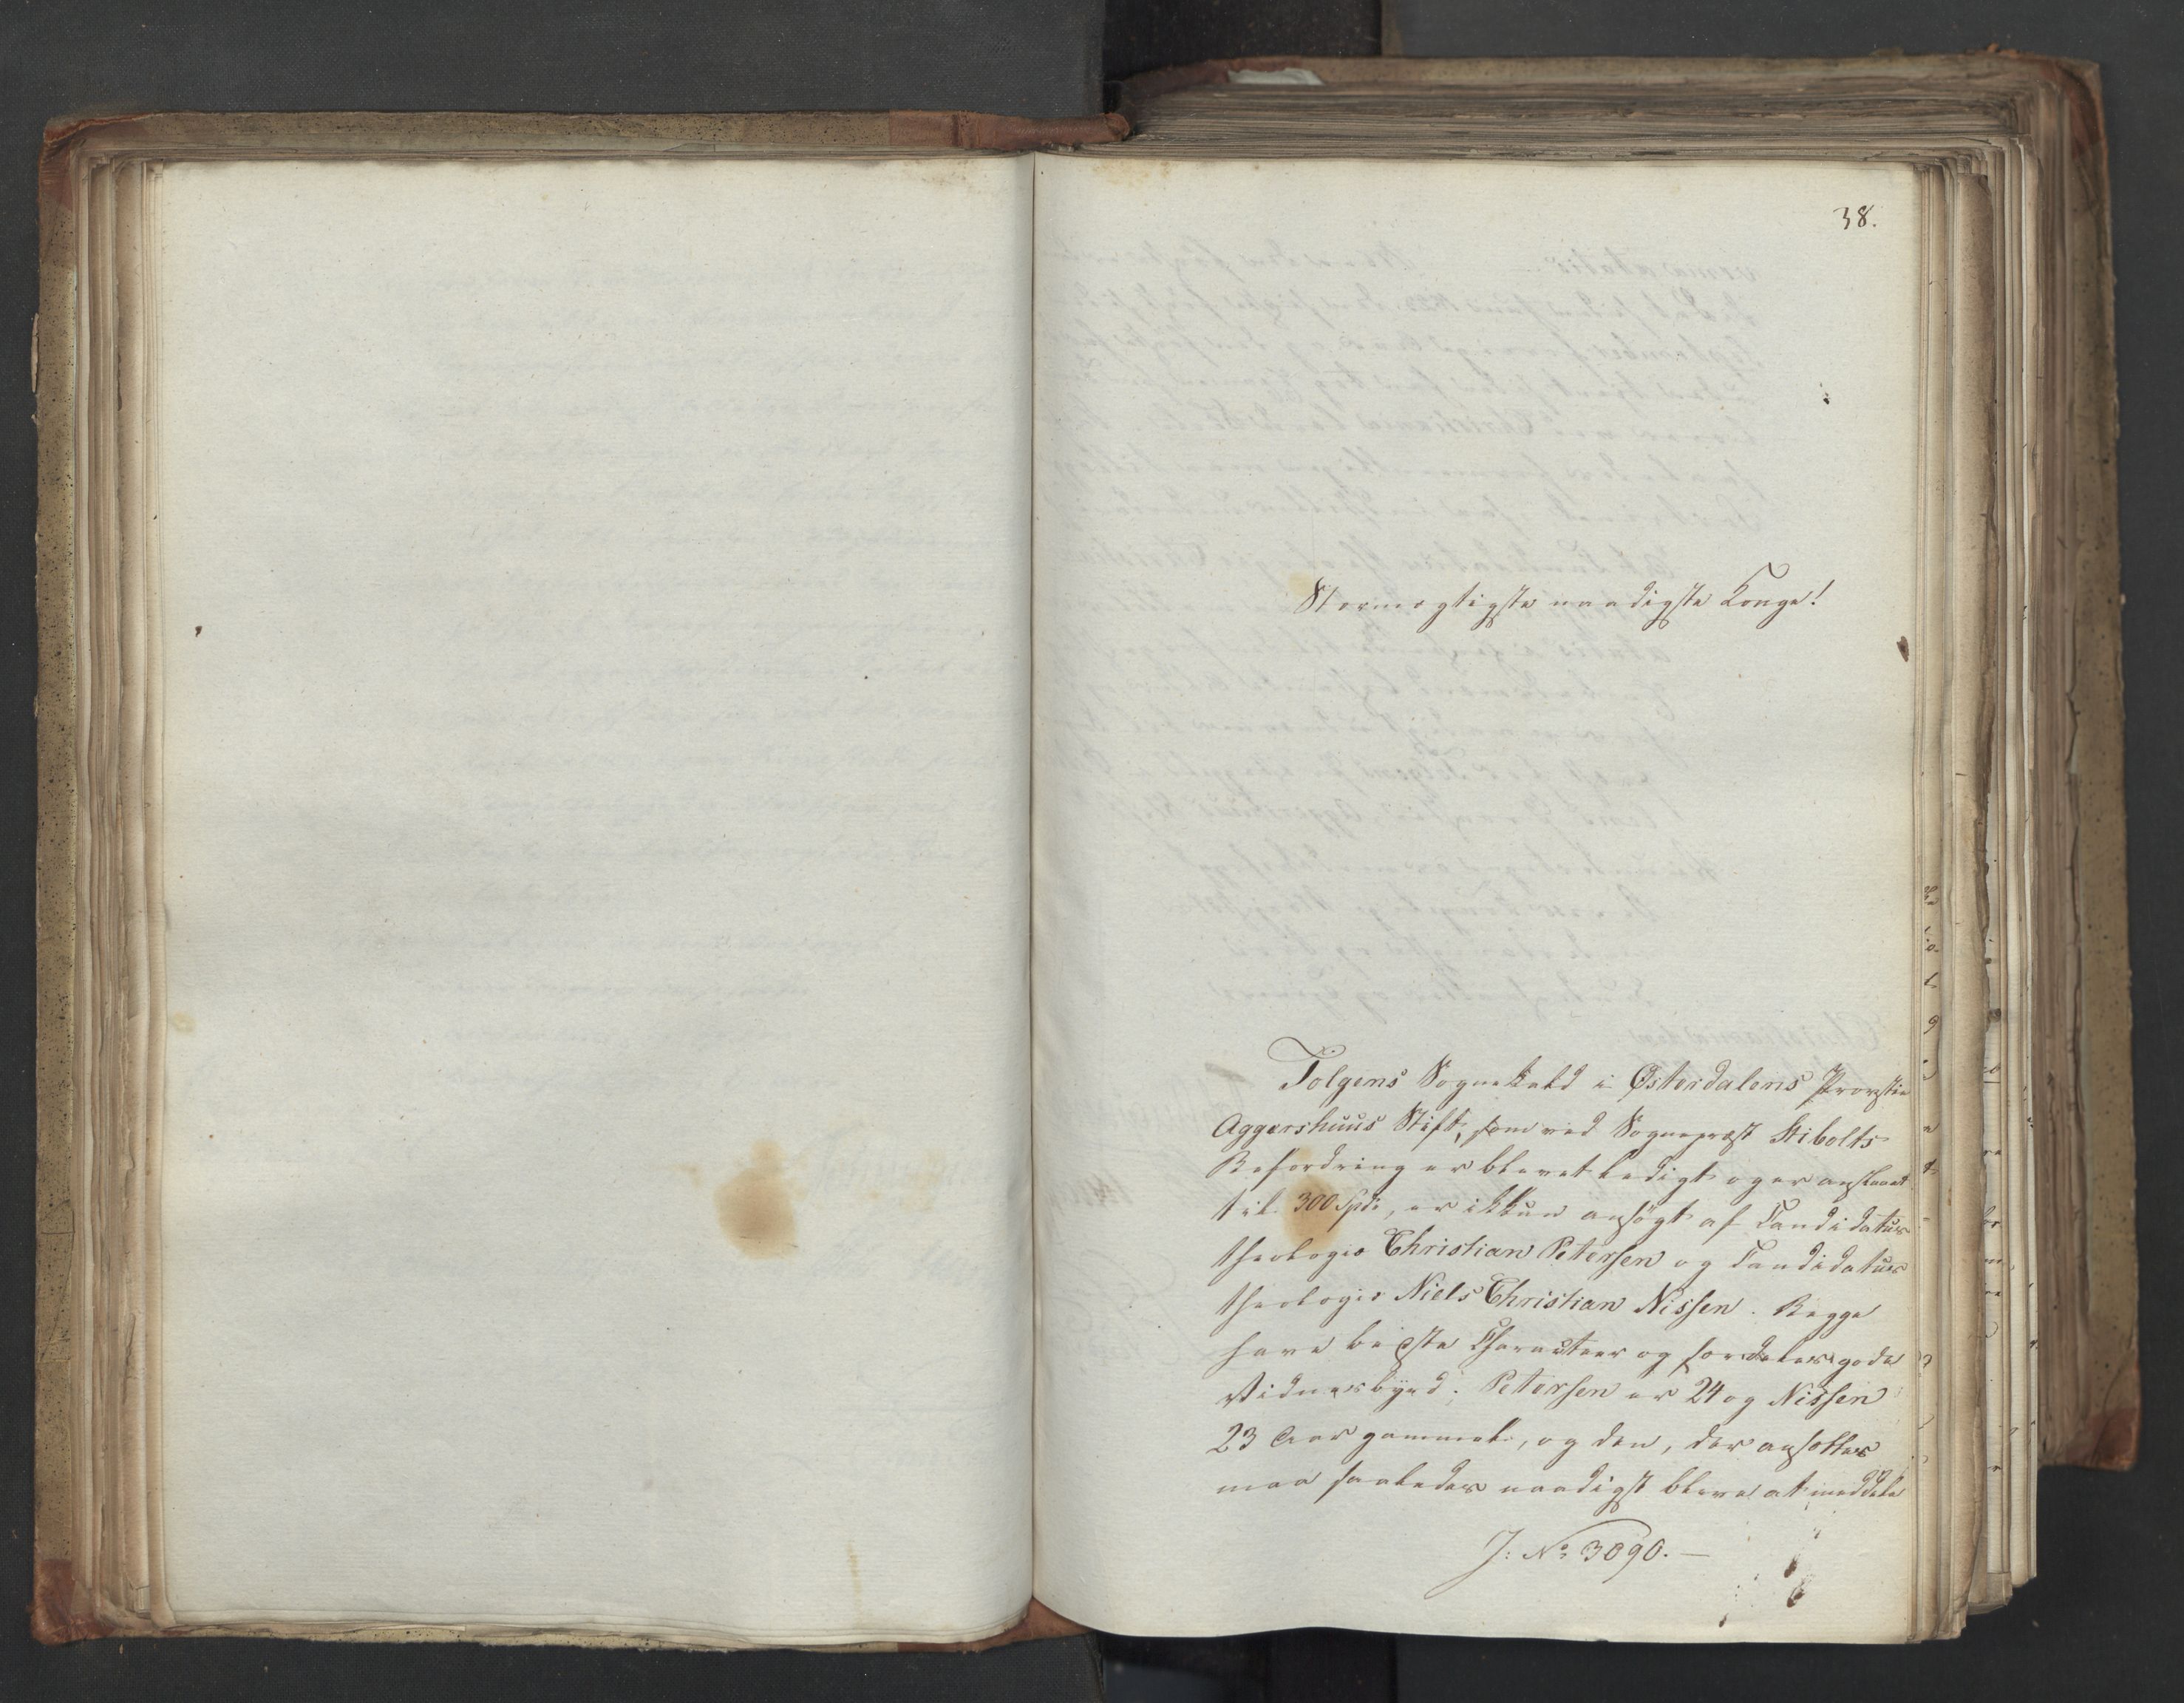 38.
Stormægtigste naadigste Konge!
Tolgens Sognekald i Østerdalens Provstie
Aggershuus Stift, som ved Sognepræst Stibolts
Befordring er blevet ledigt og er anslaaet
til 300 Spd:, er ikkun ansøgt af Candidatus
theologiæ Christian Petersen og Candidatus
theologiæ Niels Christian Nissen. Begge
have bedste Characteer og særdeles gode
Vidnesbyrd; Petersen er 24 og Nissen
23 Aar gammel, og den, der ansættes
maa saaledes naadigst blive at meddele
J: No 3090.-